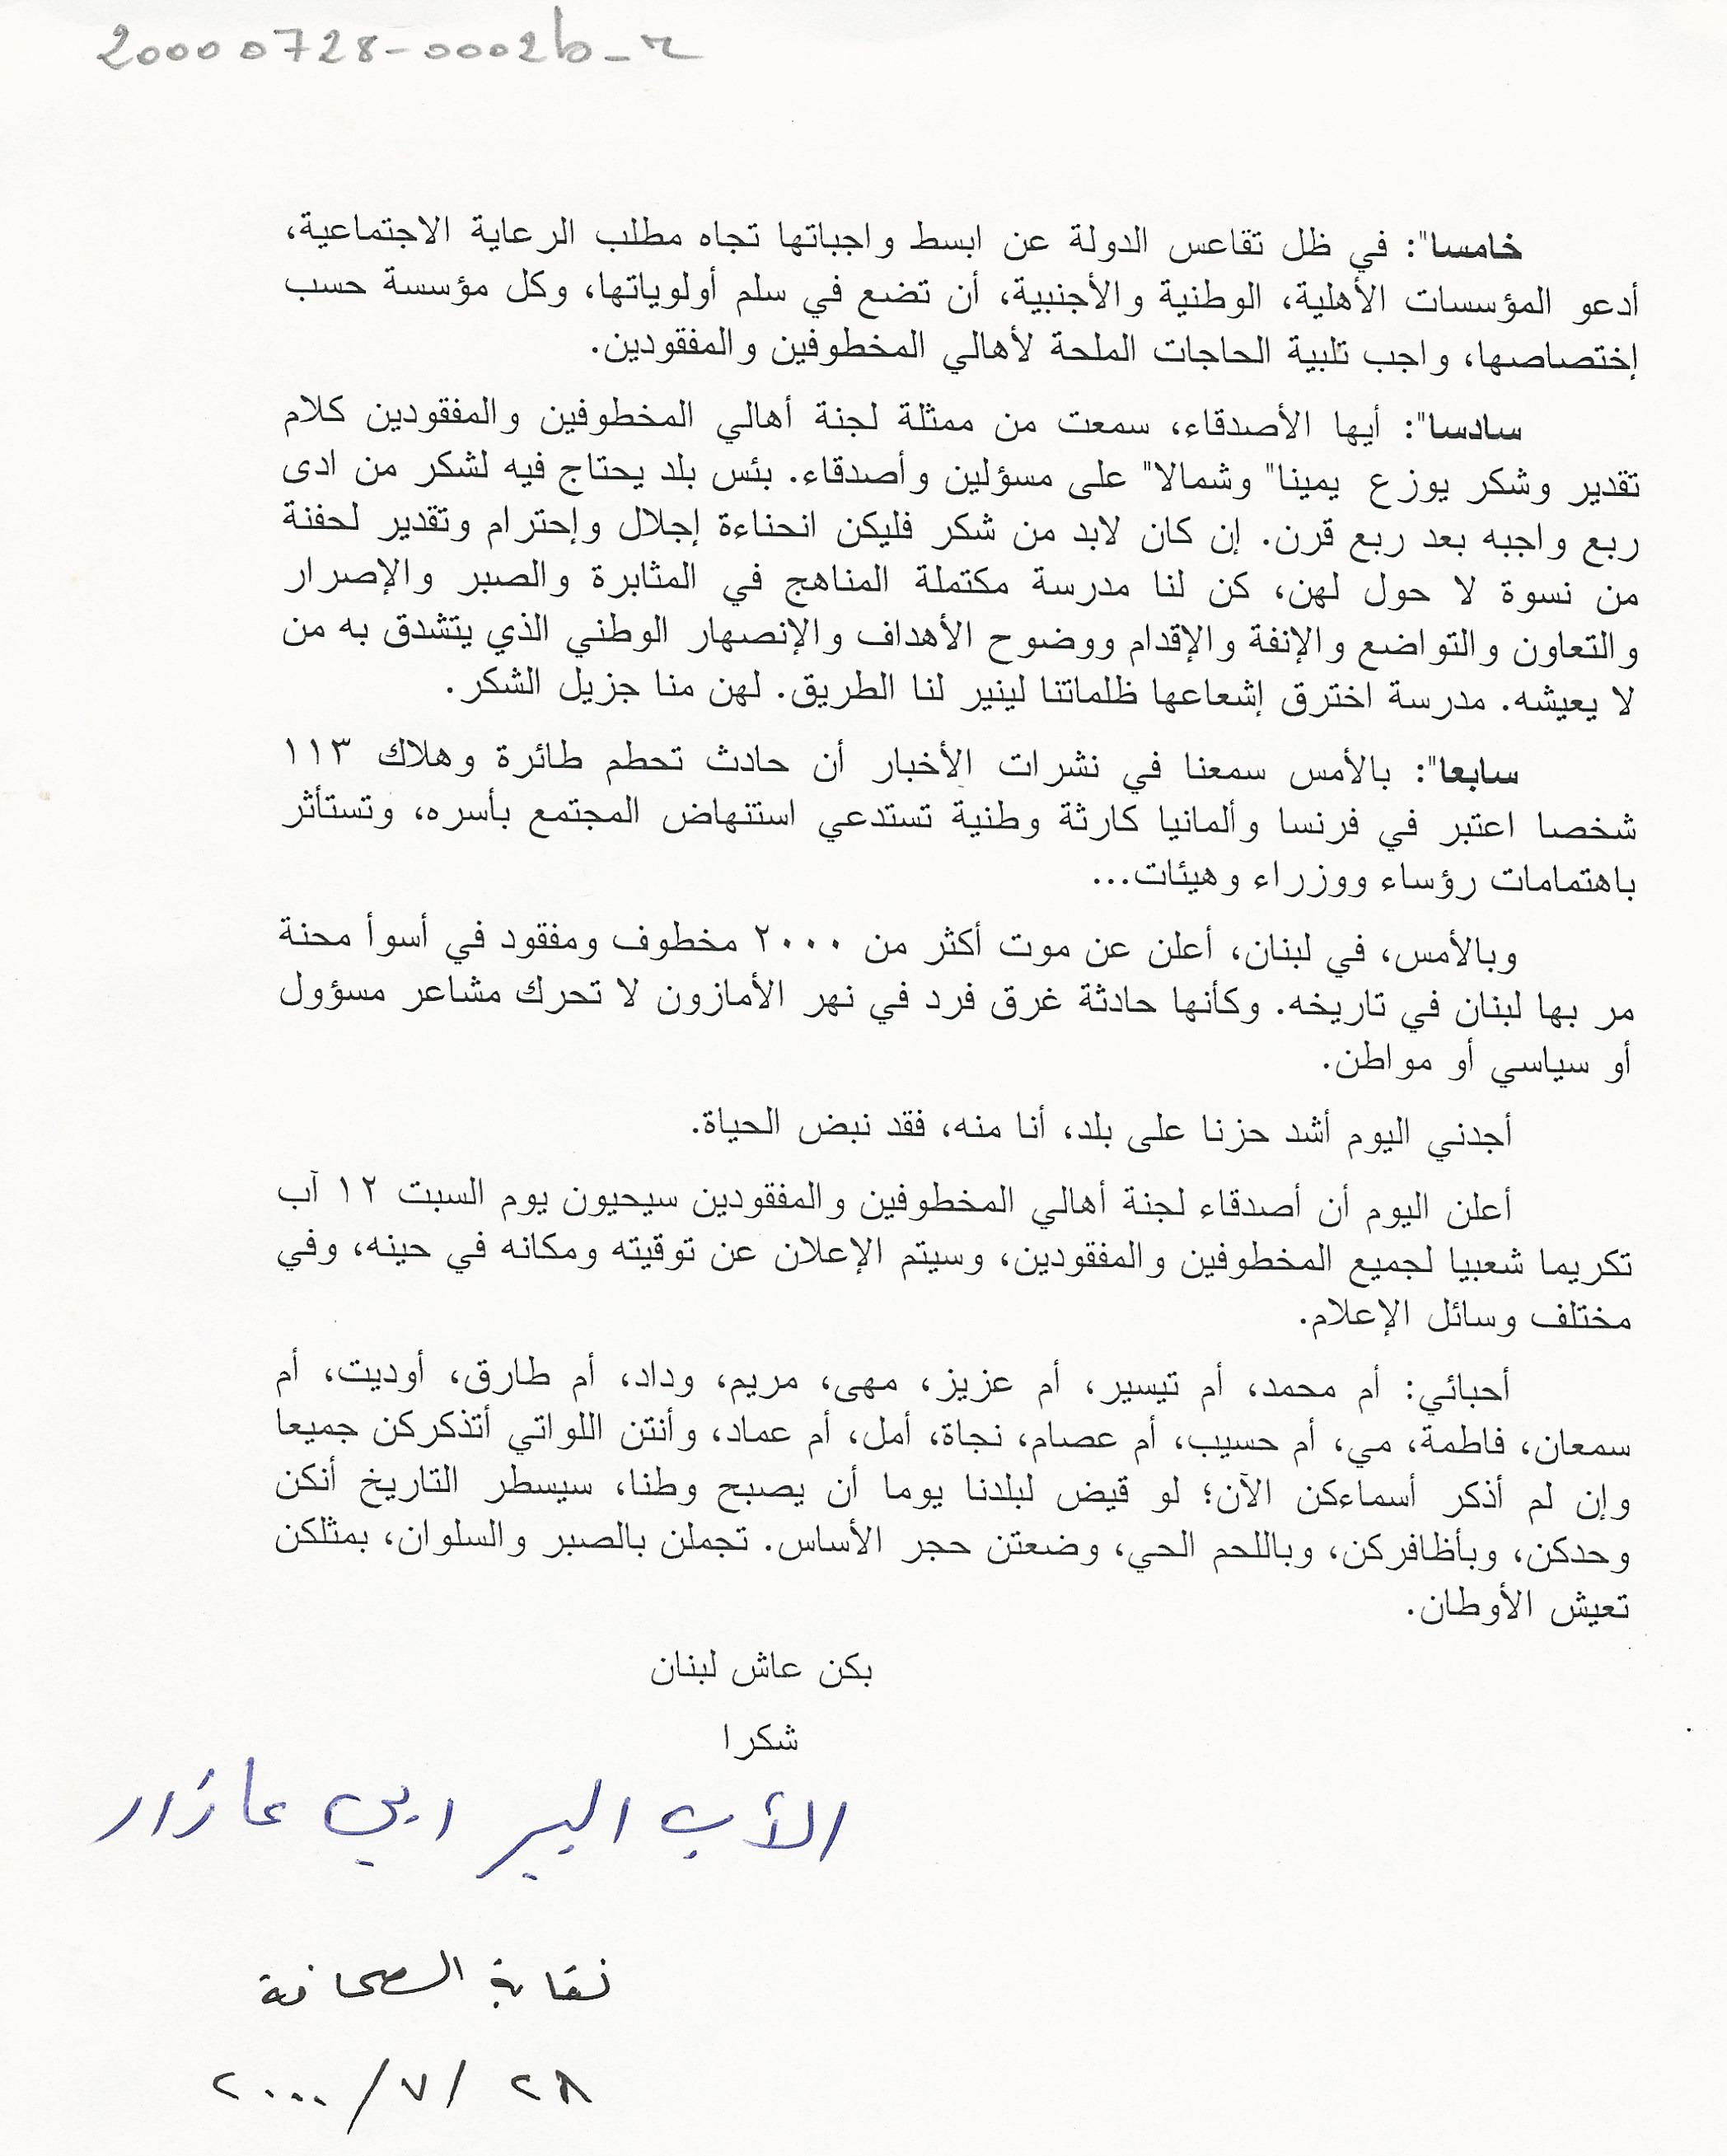 20000728-0002b-r
خامسا": في ظل تقاعس الدولة عن ابسط واجباتها تجاه مطلب الرعاية الاجتماعية،
أدعو المؤسسات الأهلية، الوطنية والأجنبية، أن تضع في سلم أولوياتها، وكل مؤسسة حسب
إختصاصها، واجب تلبية الحاجات الملحة لأهالي المخطوفين والمفقودين.
سادسا": أيها الأصدقاء، سمعت من ممثلة لجنة أهالي المخطوفين والمفقودين كلام
تقدير وشكر يوزع يمينا" وشمالا" على مسؤلين وأصدقاء. بئس بلد يحتاج فيه لشكر من ادى
ربع واجبه بعد ربع قرن. إن كان لابد من شكر فليكن انحناءة إجلال وإحترام وتقدير لحفنة
من نسوة لا حول لهن، كن لنا مدرسة مكتملة المناهج في المثابرة والصبر والإصرار
والتعاون والتواضع والإنفة والإقدام ووضوح الأهداف والإنصهار الوطني الذي يتشدق به من
لا يعيشه. مدرسة اخترق إشعاعها ظلماتنا لينير لنا الطريق. لهن منا جزيل الشكر.
سابعا": بالأمس سمعنا في نشرات الأخبار أن حادث تحطم طائرة وهلاك ١١٣
شخصا اعتبر في فرنسا وألمانيا كارثة وطنية تستدعي استنهاض المجتمع بأسره، وتستأثر
باهتمامات رؤساء ووزراء وهيئات...
وبالأمس، في لبنان، أعلن عن موت أكثر من ٢٠٠٠ مخطوف ومفقود في أسوأ محنة
مر بها لبنان في تاريخه. وكأنها حادثة غرق فرد في نهر الأمازون لا تحرك مشاعر مسؤول
أو سياسي أو مواطن.
أجدني اليوم أشد حزنا على بلد، أنا منه، فقد نبض الحياة.
أعلن اليوم أن أصدقاء لجنة أهالي المخطوفين والمفقودين سيحيون يوم السبت ١٢ آب
تكريما شعبيا لجميع المخطوفين والمفقودين، وسيتم الإعلان عن توقيته ومكانه في حينه، وفي
مختلف وسائل الإعلام.
أحبائي: أم محمد، أم تيسير، أم عزيز، مهى، مريم، وداد، أم طارق، أوديت، أم
سمعان، فاطمة، مي، أم حسيب، أم عصام، نجاة، أمل، أم عماد، وأنتن اللواتي أتذكركن جميعا
وإن لم أذكر أسماءكن الآن؛ لو قيض لبلدنا يوما أن يصبح وطنا، سيسطر التاريخ أنكن
وحدكن، وبأظافركن، وباللحم الحي، وضعتن حجر الأساس. تجملن بالصبر والسلوان، بمثلكن
تعيش الأوطان.
بكن عاش لبنان
شكرا
الأب البير ابي عازار
نقابة الصحافة
٢٨ /٧/ ٢٠٠٠